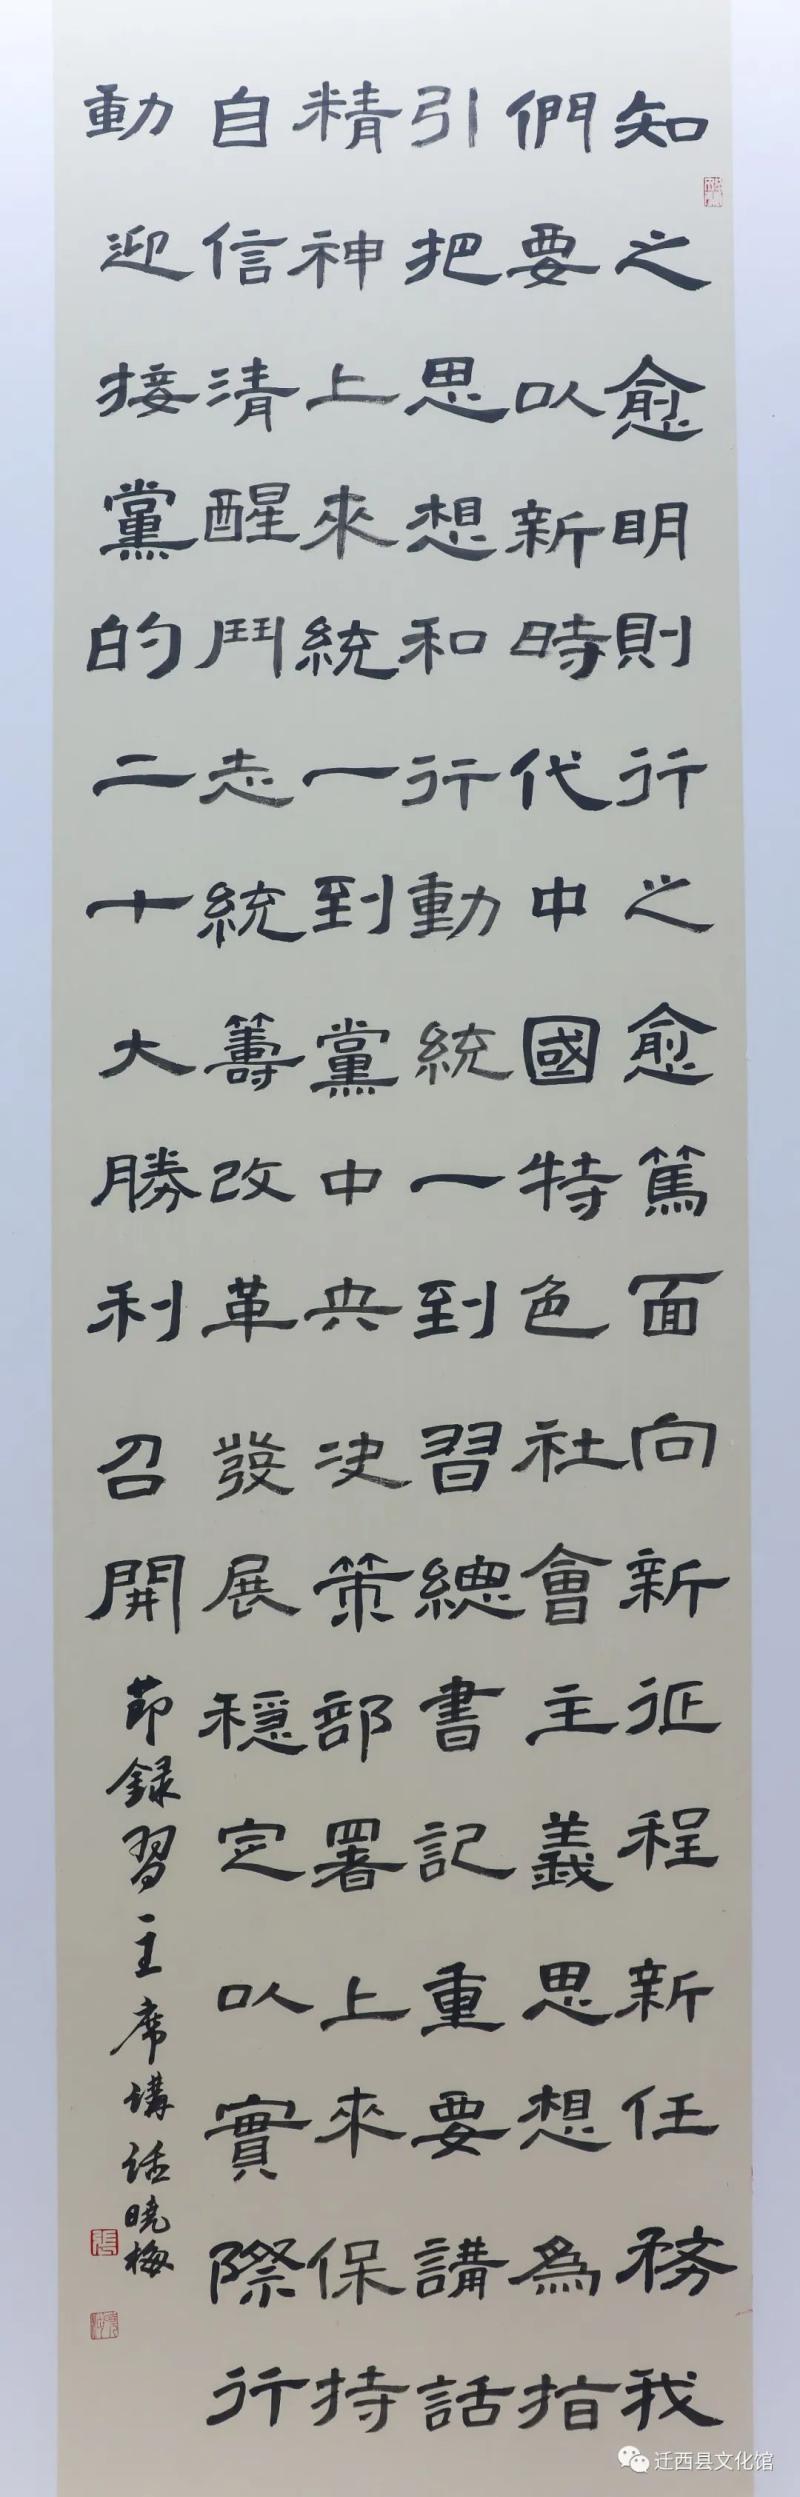 知之愈明則行之愈篤面向新征程新任務我
們要以新時代中國特色社會主義思想為指
引把思想和行動統一到習總書記重要講話
精神上來統一到黨中央決策部署上來保持
自信清醒鬥志統籌改革發展穩定以實際行
動迎接黨的二十大勝利召開
節錄習主席講話曉梅
迁西县文化馆